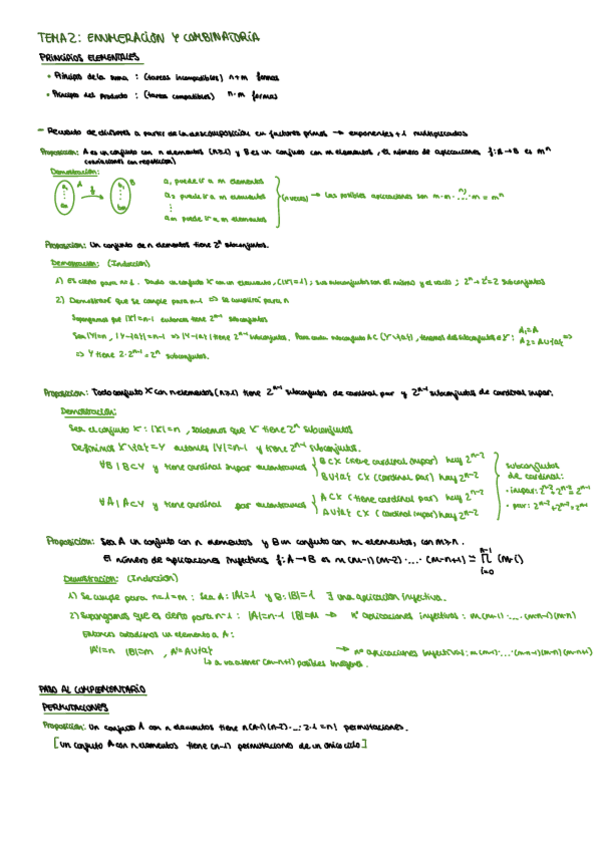 TEMA 2: ENUMERACIÓN Y COMBINATORIA
PRINCIPIOS ELEMENTALES
• Principio de la suma : (tareas incompatibles) n+m formas
• Principio del Producto : (tareas compatibles) n·m formas
- Recuento de divisores a partir de la descomposición en factores primos → exponentes+1 multiplicados
Proposición: A es un conjunto con n elementos (n≥1) y B es un conjunto con m elementos, el número de aplicaciones f: A→B es mⁿ
(variaciones con repetición)
Demostración:
A f B
a₁ puede ir a m elementos
a₂ puede ir a m elementos
⋮
puede ir a m elementos
(n veces) → Las posibles aplicaciones son m·m·...·m = mⁿ
Proposición: Un conjunto de n elementos tiene 2ⁿ subconjuntos.
Demostración: (Inducción)
1) Es cierto para n=1. Dado un conjunto X con un elemento, (|X|=1); sus subconjuntos son él mismo y el vacío ; 2ⁿ = 2¹ = 2 subconjuntos
2) Demostrar que se cumple para n-1 ⇒ se cumplirá para n
Supongamos que |X|=n-1 entonces tiene 2ⁿ⁻¹ subconjuntos
Sea |Y|=n, |Y-{a}|=n-1 ⇒ |Y-{a}| tiene 2ⁿ⁻¹ subconjuntos. Para cada subconjunto A⊂(Y-{a}), tenemos dos subconjuntos de Y: A₁=A A₂=A∪{a} ⇒
⇒ Y tiene 2·2ⁿ⁻¹=2ⁿ subconjuntos.
Proposición: Todo conjunto X con n elementos (n≥1) tiene 2ⁿ⁻¹ subconjuntos de cardinal par y 2ⁿ⁻¹ subconjuntos de cardinal impar.
Demostración:
Sea el conjunto X : |X|=n, sabemos que X tiene 2ⁿ subconjuntos
Definimos X\{a}=Y entonces |Y|=n-1 y tiene 2ⁿ⁻¹ subconjuntos.
∀B | B⊂Y y tiene cardinal impar encontramos { B⊂X (tiene cardinal impar) hay 2ⁿ⁻²
B∪{a}⊂X (cardinal par) hay 2ⁿ⁻²
∀A | A⊂Y y tiene cardinal par encontramos { A⊂X (tiene cardinal par) hay 2ⁿ⁻²
A∪{a}⊂X (cardinal impar) hay 2ⁿ⁻²
subconjuntos
de cardinal:
• impar: 2ⁿ⁻²+2ⁿ⁻²=2ⁿ⁻¹
• par: 2ⁿ⁻²+2ⁿ⁻²=2ⁿ⁻¹
Proposición: Sea A un conjunto con n elementos y B un conjunto con m elementos, con m≥n.
El número de aplicaciones inyectivas f: A→B es m(m-1)(m-2)·...·(m-n+1) = ∏ᵢ₌₀ⁿ⁻¹ (m-i)
Demostración: (Inducción)
1) Se cumple para n=1=m : Sea A: |A|=1 y B: |B|=1 ∃ una aplicación inyectiva.
2) Supongamos que es cierto para n-1 : |A|=n-1 |B|=m → Nº aplicaciones inyectivas : m(m-1)·...·(m-n-1)(m-n)
Entonces añadimos un elemento a A:
|A'|=n |B|=m , A'=A∪{a} → nº aplicaciones inyectivas: m(m-1)·...·(m-n-1)(m-n)(m-n+1)
↳ a va a tener (m-n+1) posibles imágenes.
PASO AL COMPLEMENTARIO
PERMUTACIONES
Proposición: Un conjunto A con n elementos tiene n(n-1)(n-2)·...·2·1 = n! permutaciones.
[Un conjunto A con n elementos tiene (n-1) permutaciones de un único ciclo]